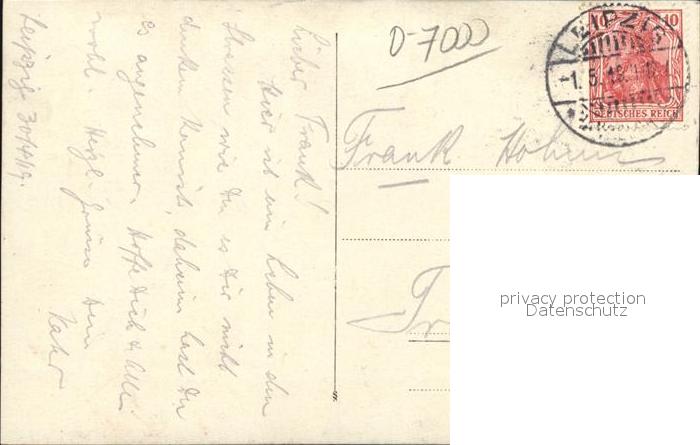 Leipzig 30/4/19.
Lieber Frank!
Hier ist ein Leben in den
Strassen wie Du es Dir nicht
denken kannst, daheim hast Du
es angenehmer. Hoffe Dich & Alle
wohl. Hzgl. Grüsse Dein
Vater
D-7000
LEIPZIG
10 10
DEUTSCHES REICH
Frank
privacy protection
Datenschutz